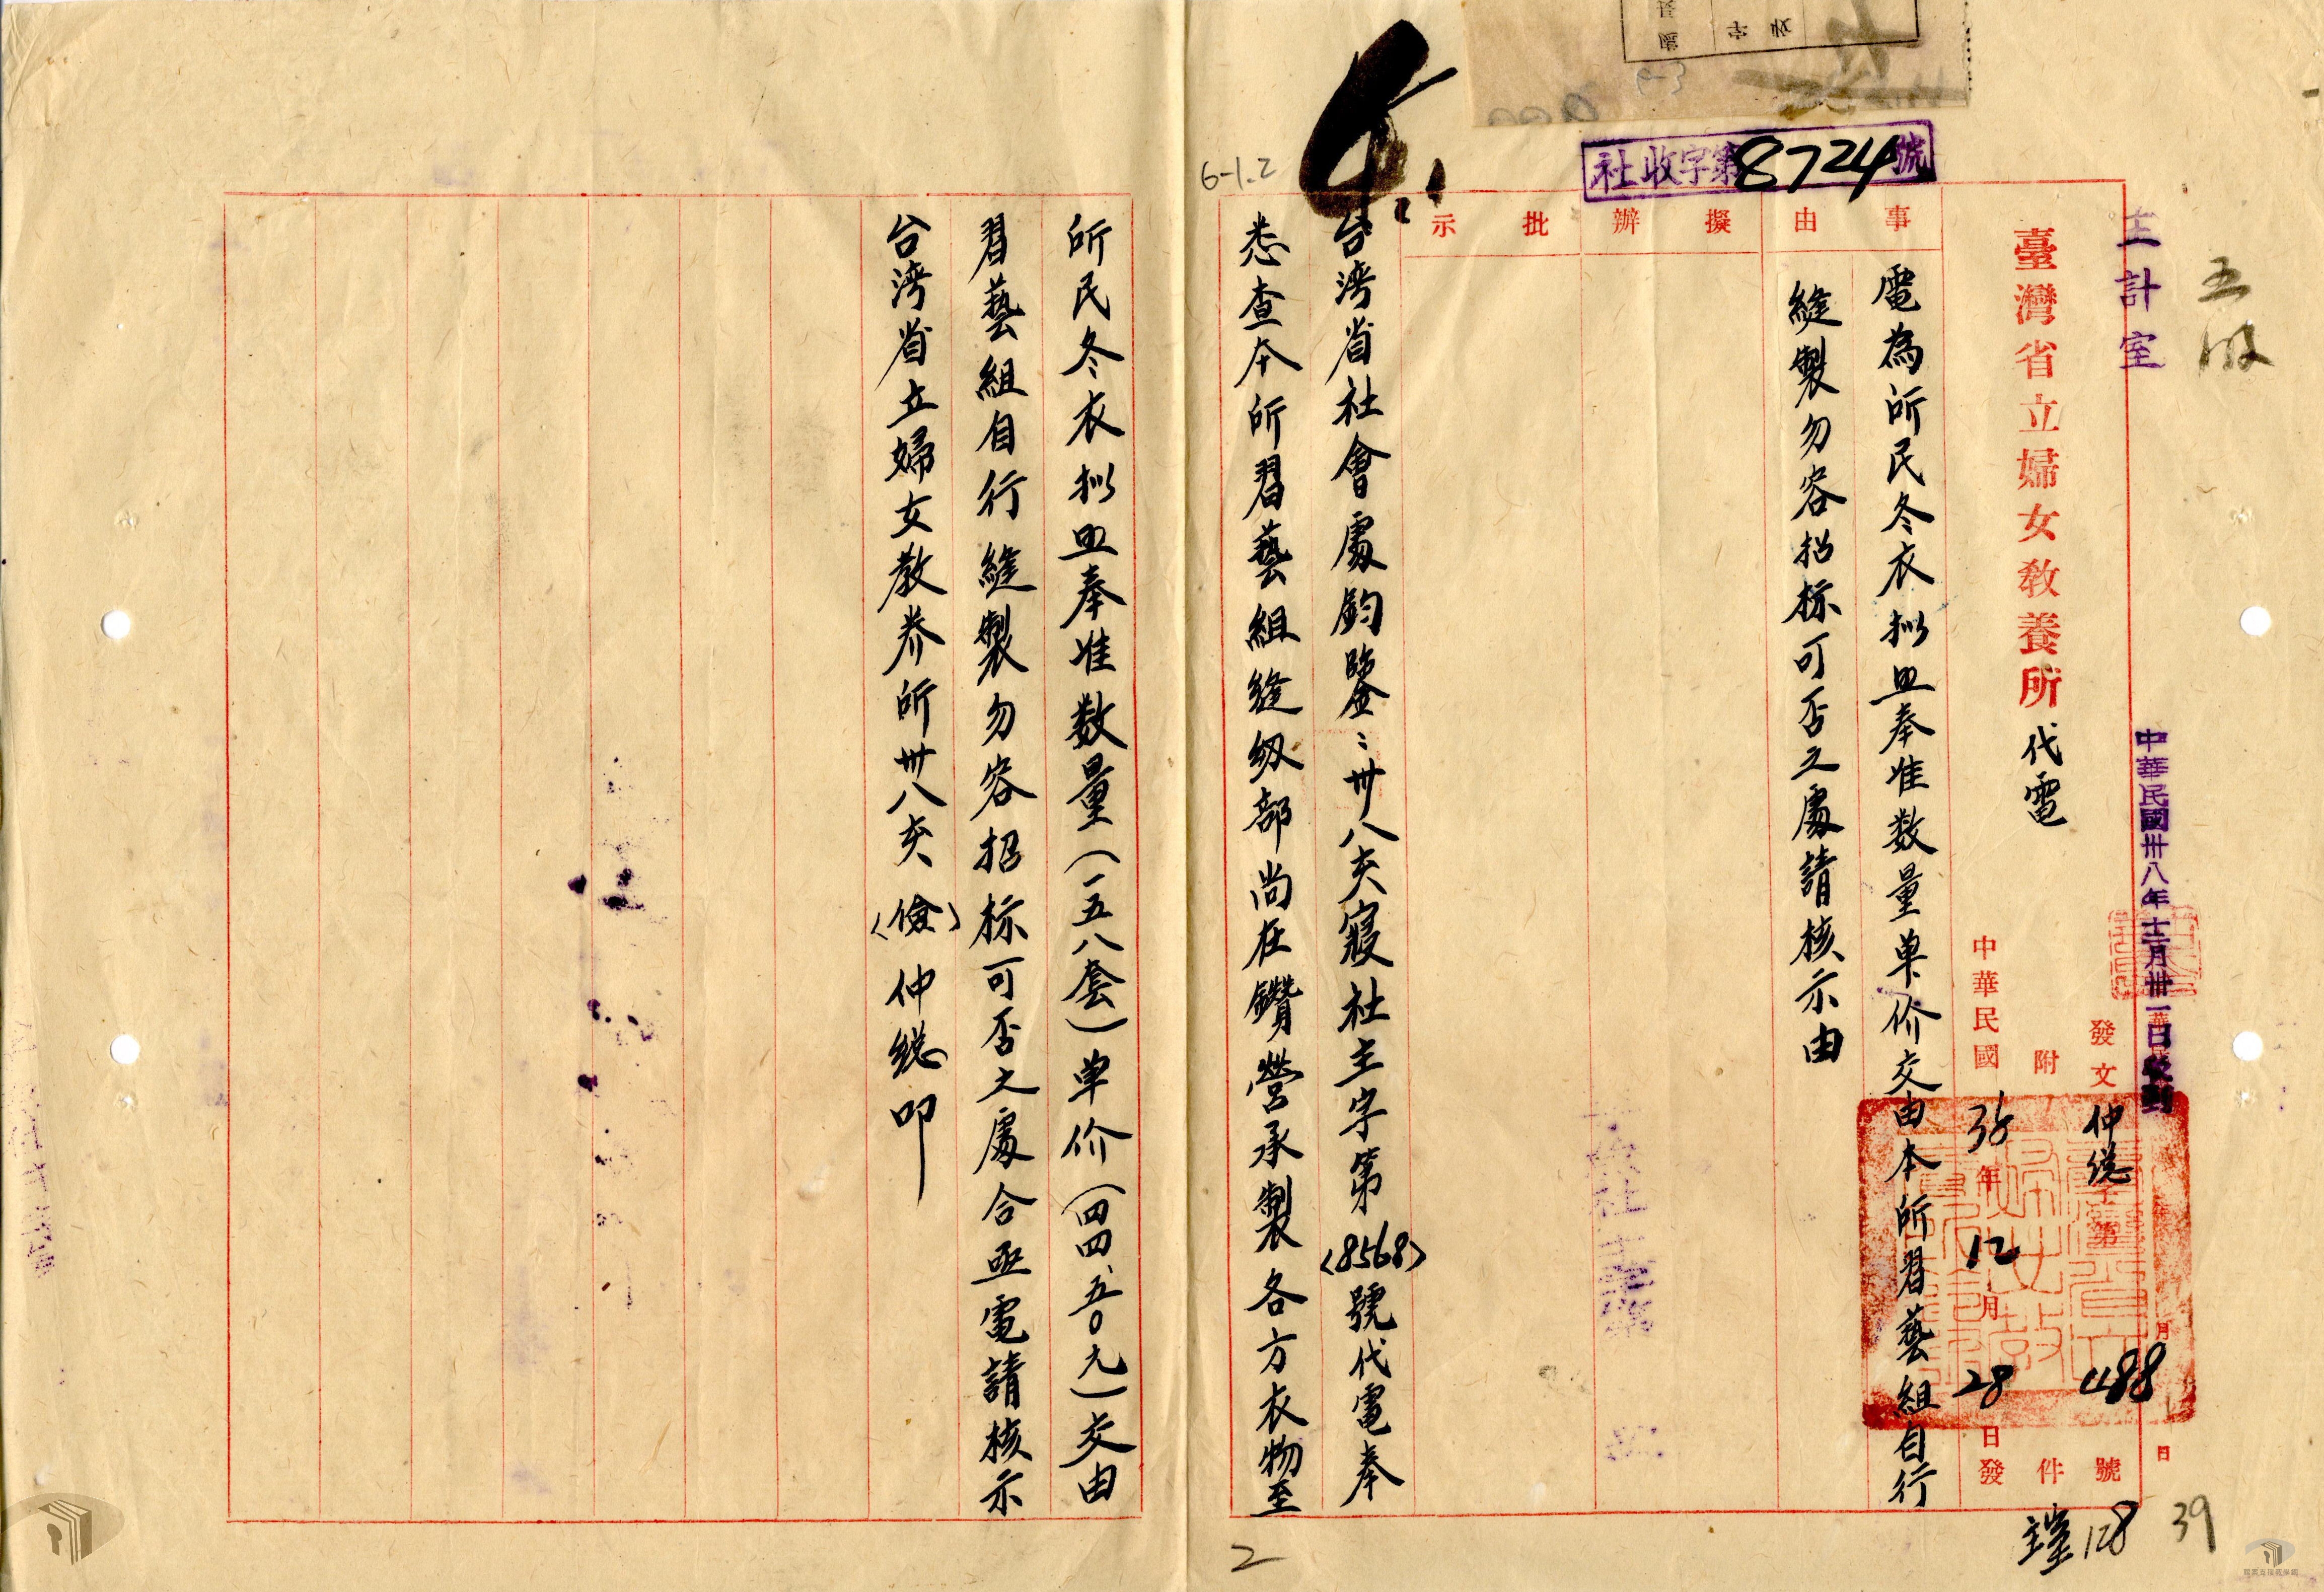 主計室
中華民國卅八年十二月卅一日收到
社收字第8724號
臺灣省立婦女教養所代電
發文 仲總字第1188號
附 件
中華民國38年12月28日發
事由
電為所民冬衣拟照奉准数量单价交由本所習藝組自行
縫製勿容招标可否之處請核示由
擬辦
批示
台湾省社會處鈞鑒：卅八亥寢社主字第(8568)號代電奉
悉查本所習藝組縫纫部尚在鑽營承製各方衣物至
所民冬衣拟照奉准数量(一五八套)单价(四四.五〇元)交由
習藝組自行縫製勿容招标可否之處合亟電請核示
台湾省立婦女教养所卅八亥(儉)仲總叩
6-1.2
2
39
128